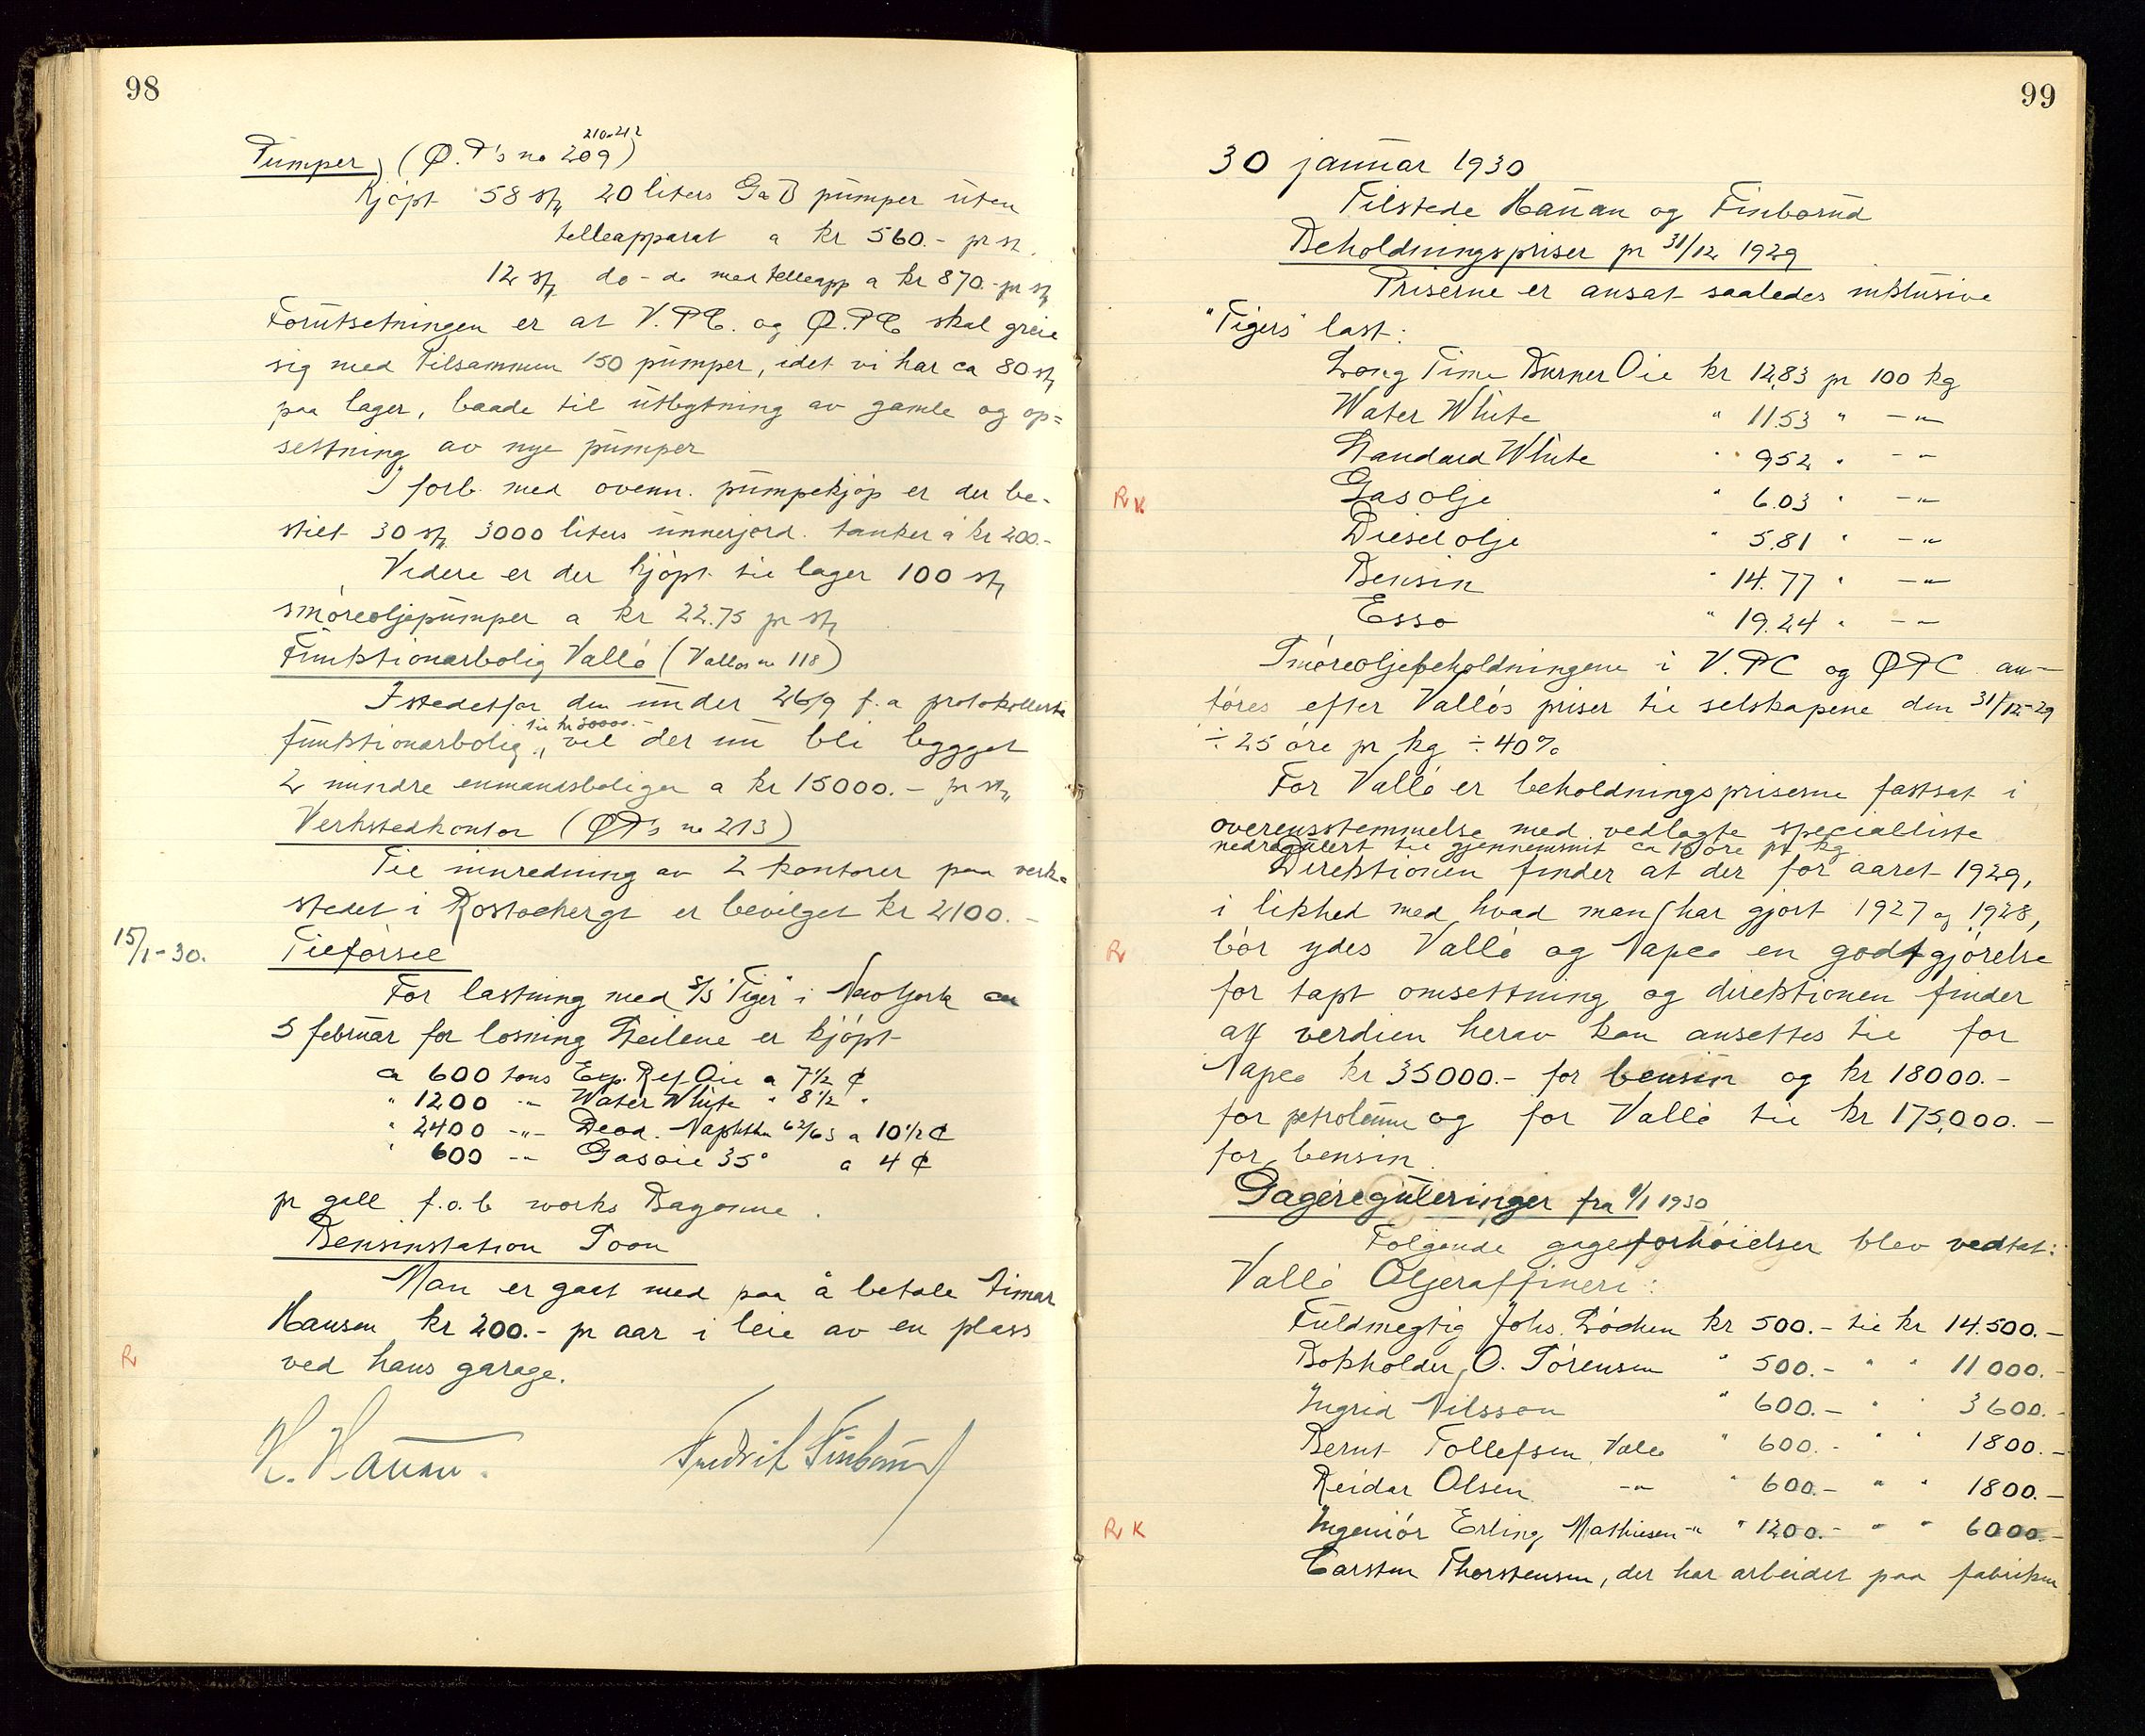 98
210-212
Pumper) (Ø.P's no 209)
Kjøpt 58 stk 20 liters G&B pumper uten
telleapparat a kr 560.- pr st.
12 stk do - do med telleapp a kr 870.- pr stk
Forutsetningen er at V.P.C. og Ø.P.C. skal greie
sig med tilsammen 150 pumper, idet vi har ca 80 stk
paa lager, baade til utbytning av gamle og op=
settning av nye pumper
I forb. med ovenn. pumpekjøp er der be-
stilt 30 stk 3000 liters unnerjord. tanker á kr 200.-
Videre er der kjøpt til lager 100 stk
smøreoljepumper a kr 22.75 pr stk
Funktionærbolig Vallø (Valløs no 118)
Istedetfor den under 26/9 f.a protokollerte
til kr 30000.-
funktionærbolig, vil der nu bli bygget
2 mindre enmandsboliger a kr 15000.- pr stk
Verkstedkontor (ØP's no 213)
Til innredning av 2 kontorer paa verk-
stedet i Rostockergt er bevilget kr 2100.-
15/1-30.
Tilførsel
For lastning med S/S "Tiger" i New York ca
5 februar for losning Steilene er kjøpt
ca 600 tons Exp. Ref. Oil a 7 1/2 ¢
" 1200 -"- Water White " 8 1/2 "
" 2400 -"- Deod. Naphtha 62/63 a 10 1/2 ¢
" 600 -"- Gasoil 35° a 4 ¢
pr gall f.o.b works Bayonne.
Bensinstation Soon
Man er gaat med paa å betale Einar
Hansen kr 200.- pr aar i leie av en plass
R
ved hans garage.
H. Hauan. Fredrik Finborud
99
30 januar 1930
Tilstede Hauan og Finborud
Beholdningspriser pr 31/12 1929
Priserne er ansat saaledes inklusive
"Tigers" last:
Long Time Burner Oil kr 12,83 pr 100 kg
Water White " 11.53 " -"-
Standard White " 9.52 " -"-
R K
Gasolje " 6.03 " -"-
Dieselolje " 5.81 " -"-
Bensin " 14.77 " -"-
Esso " 19.24 " -"-
Smøreoljebeholdningene i V.P.C og ØPC an-
føres efter Valløs priser til selskapene den 31/12-29
÷ 25 øre pr kg ÷ 40%
For Vallø er beholdningspriserne fastsat i
overensstemmelse med vedlagte specialliste
nedregulert til gjennemsnit ca 10 øre pr kg
Direktionen finder at der for aaret 1929,
i likhed med hvad man har gjort 1927 og 1928,
R
bør ydes Vallø og Napco en godtgjørelse
for tapt omsettning og direktionen finder
at verdien herav kan ansettes til for
Napco kr 35000.- for bensin og kr 18000.-
for petroleum og for Vallø til kr 175,000.-
for bensin.
Gagereguleringer fra 1/1 1930
Følgende gageforhøielser blev vedtat:
Vallø Oljeraffineri:
Fuldmegtig Johs. Løchen kr 500.- til kr 14.500.-
Bokholder O. Sørensen " 500.- " " 11000.-
Ingrid Nilsson " 600.- " " 3600.-
Bernt Tollefsen, Vallø " 600.- " " 1800.-
Reidar Olsen -"- " 600.- " " 1800.-
R K
Ingeniør Erling Mathiesen -"- " 1200.- " " 6000.-
Carsten Thorstensen, der har arbeidet paa fabriken